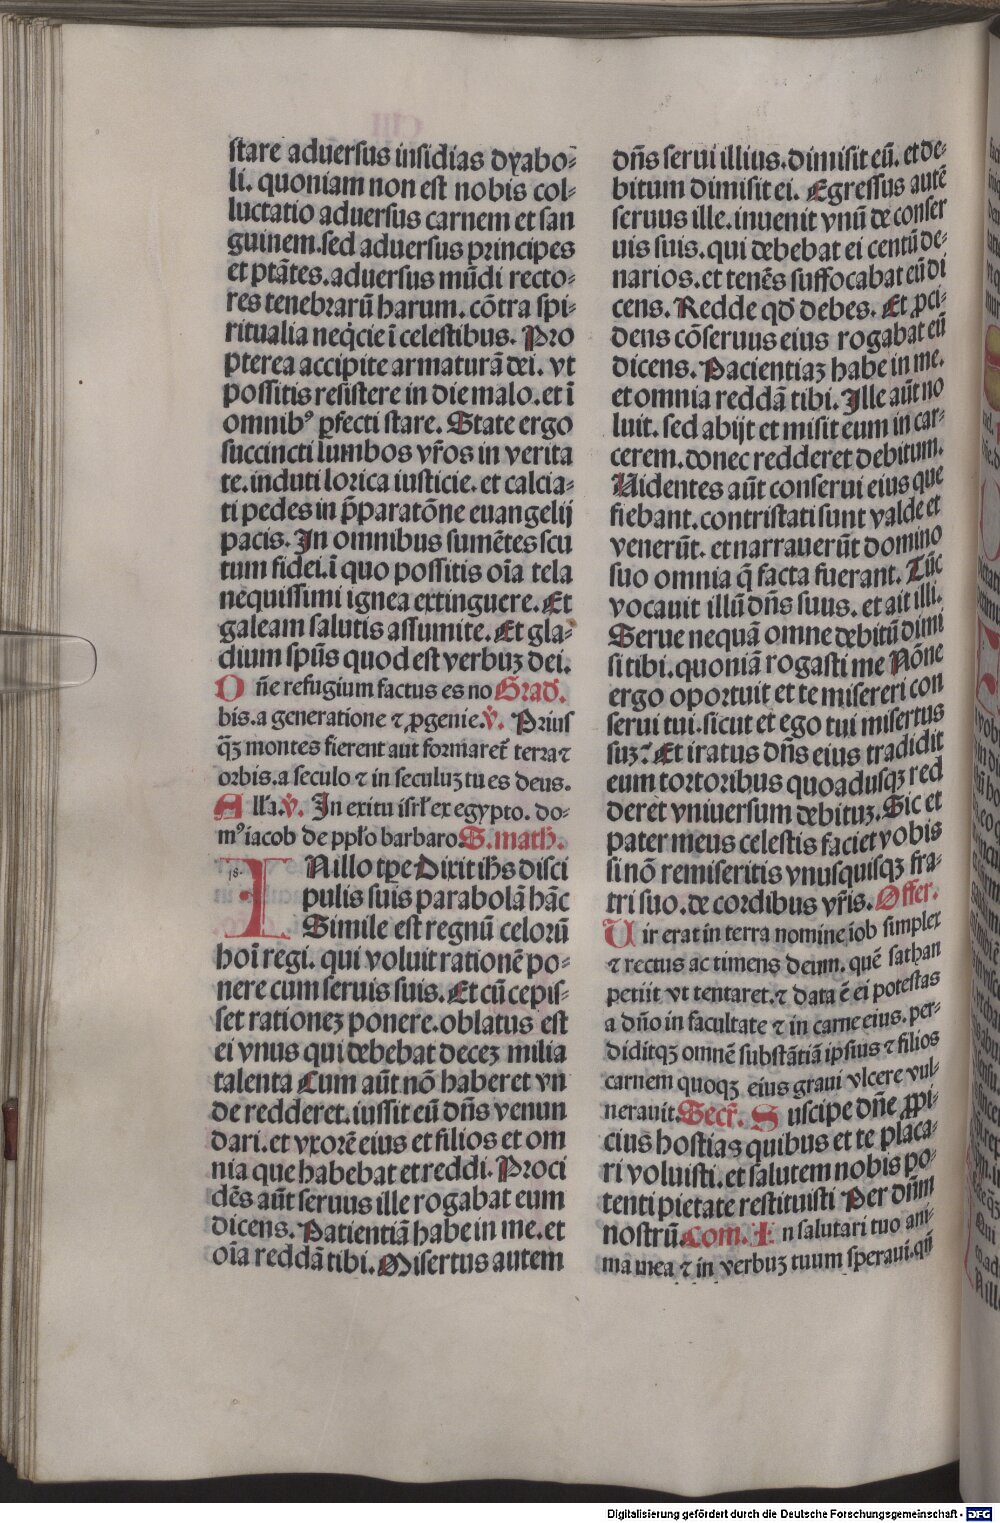 stare aduersus insidias dyabo-
li. quoniam non est nobis col-
luctatio aduersus carnem et san
guinem. sed aduersus principes
et ptātes. aduersus mūdi recto-
res tenebrarū harum. cōtra spi-
ritualia neq̄cie ī celestibus. Pro
pterea accipite armaturā dei. vt
possitis resistere in die malo. et ī
omnibꝰ ꝑfecti stare. State ergo
succincti lumbos vr̄os in verita
te. induti lorica iusticie. et calcia-
ti pedes in p̄paratōne euangelij
pacis. In omnibus sumētes scu
tum fidei. ī quo possitis oīa tela
nequissimi ignea extinguere. Et
galeam salutis assumite. Et gla-
dium spūs quod est verbuꝫ dei.
Dn̄e refugium factus es no Grad.
bis. a generatione ⁊ ꝓgenie. v̄. Prius
qꝫ montes fierent aut formaret̄ terra ⁊
orbis. a seculo ⁊ in seculuꝫ tu es deus.
Alla. v̄. In exitu isrl̄ ex egypto. do-
mꝰ iacob de ppl̄o barbaro. S. math.
IN illo tꝑe Dixit ih̄s disci
pulis suis parabolā hāc
Simile est regnū celorū
hoī regi. qui voluit rationē po-
nere cum seruis suis. Et cū cepis-
set rationeꝫ ponere. oblatus est
ei vnus qui debebat deceꝫ milia
talenta Cum aūt nō haberet vn
de redderet. iussit eū dn̄s venun
dari. et vxorē eius et filios et om
nia que habebat et reddi. Proci
dēs aūt seruus ille rogabat eum
dicens. Patientiā habe in me. et
oīa reddā tibi. Misertus autem
dn̄s serui illius. dimisit eū. et de-
bitum dimisit ei. Egressus autē
seruus ille. inuenit vnū de conser
uis suis. qui debebat ei centū de-
narios. et tenēs suffocabat eū di
cens. Redde qd̄ debes. Et ꝓci-
dens cōseruus eius rogabat eū
dicens. Pacientiaꝫ habe in me.
et omnia reddā tibi. Ille aūt no
luit. sed abijt et misit eum in car-
cerem. donec redderet debitum.
Uidentes aūt conserui eius que
fiebant. contristati sunt valde et
venerūt. et narrauerūt domino
suo omnia q̄ facta fuerant. Tūc
vocauit illū dn̄s suus. et ait illi.
Serue nequā omne debitū dimi
si tibi. quoniā rogasti me Nōne
ergo oportuit et te misereri con
serui tui. sicut et ego tui misertus
suꝫ? Et iratus dn̄s eius tradidit
eum tortoribus quoadusqꝫ red
deret vniuersum debituꝫ. Sic et
pater meus celestis faciet vobis
si nō remiseritis vnusquisqꝫ fra-
tri suo. de cordibus vr̄is. Offer.
Uir erat in terra nomine iob simplex
⁊ rectus ac timens deum. quē sathan
petiit vt tentaret. ⁊ data ē ei potestas
a dn̄o in facultate ⁊ in carne eius. per-
diditqꝫ omnē substātiā ipsius ⁊ filios
carnem quoqꝫ eius graui vlcere vul-
nerauit. Secr̄. Suscipe dn̄e ꝓpi-
cius hostias quibus et te placa-
ri voluisti. et salutem nobis po-
tenti pietate restituisti Per dn̄m
nostrū. Com. In salutari tuo ani-
ma mea ⁊ in verbuꝫ tuum speraui. qn̄
Digitalisierung gefördert durch die Deutsche Forschungsgemeinschaft - DFG